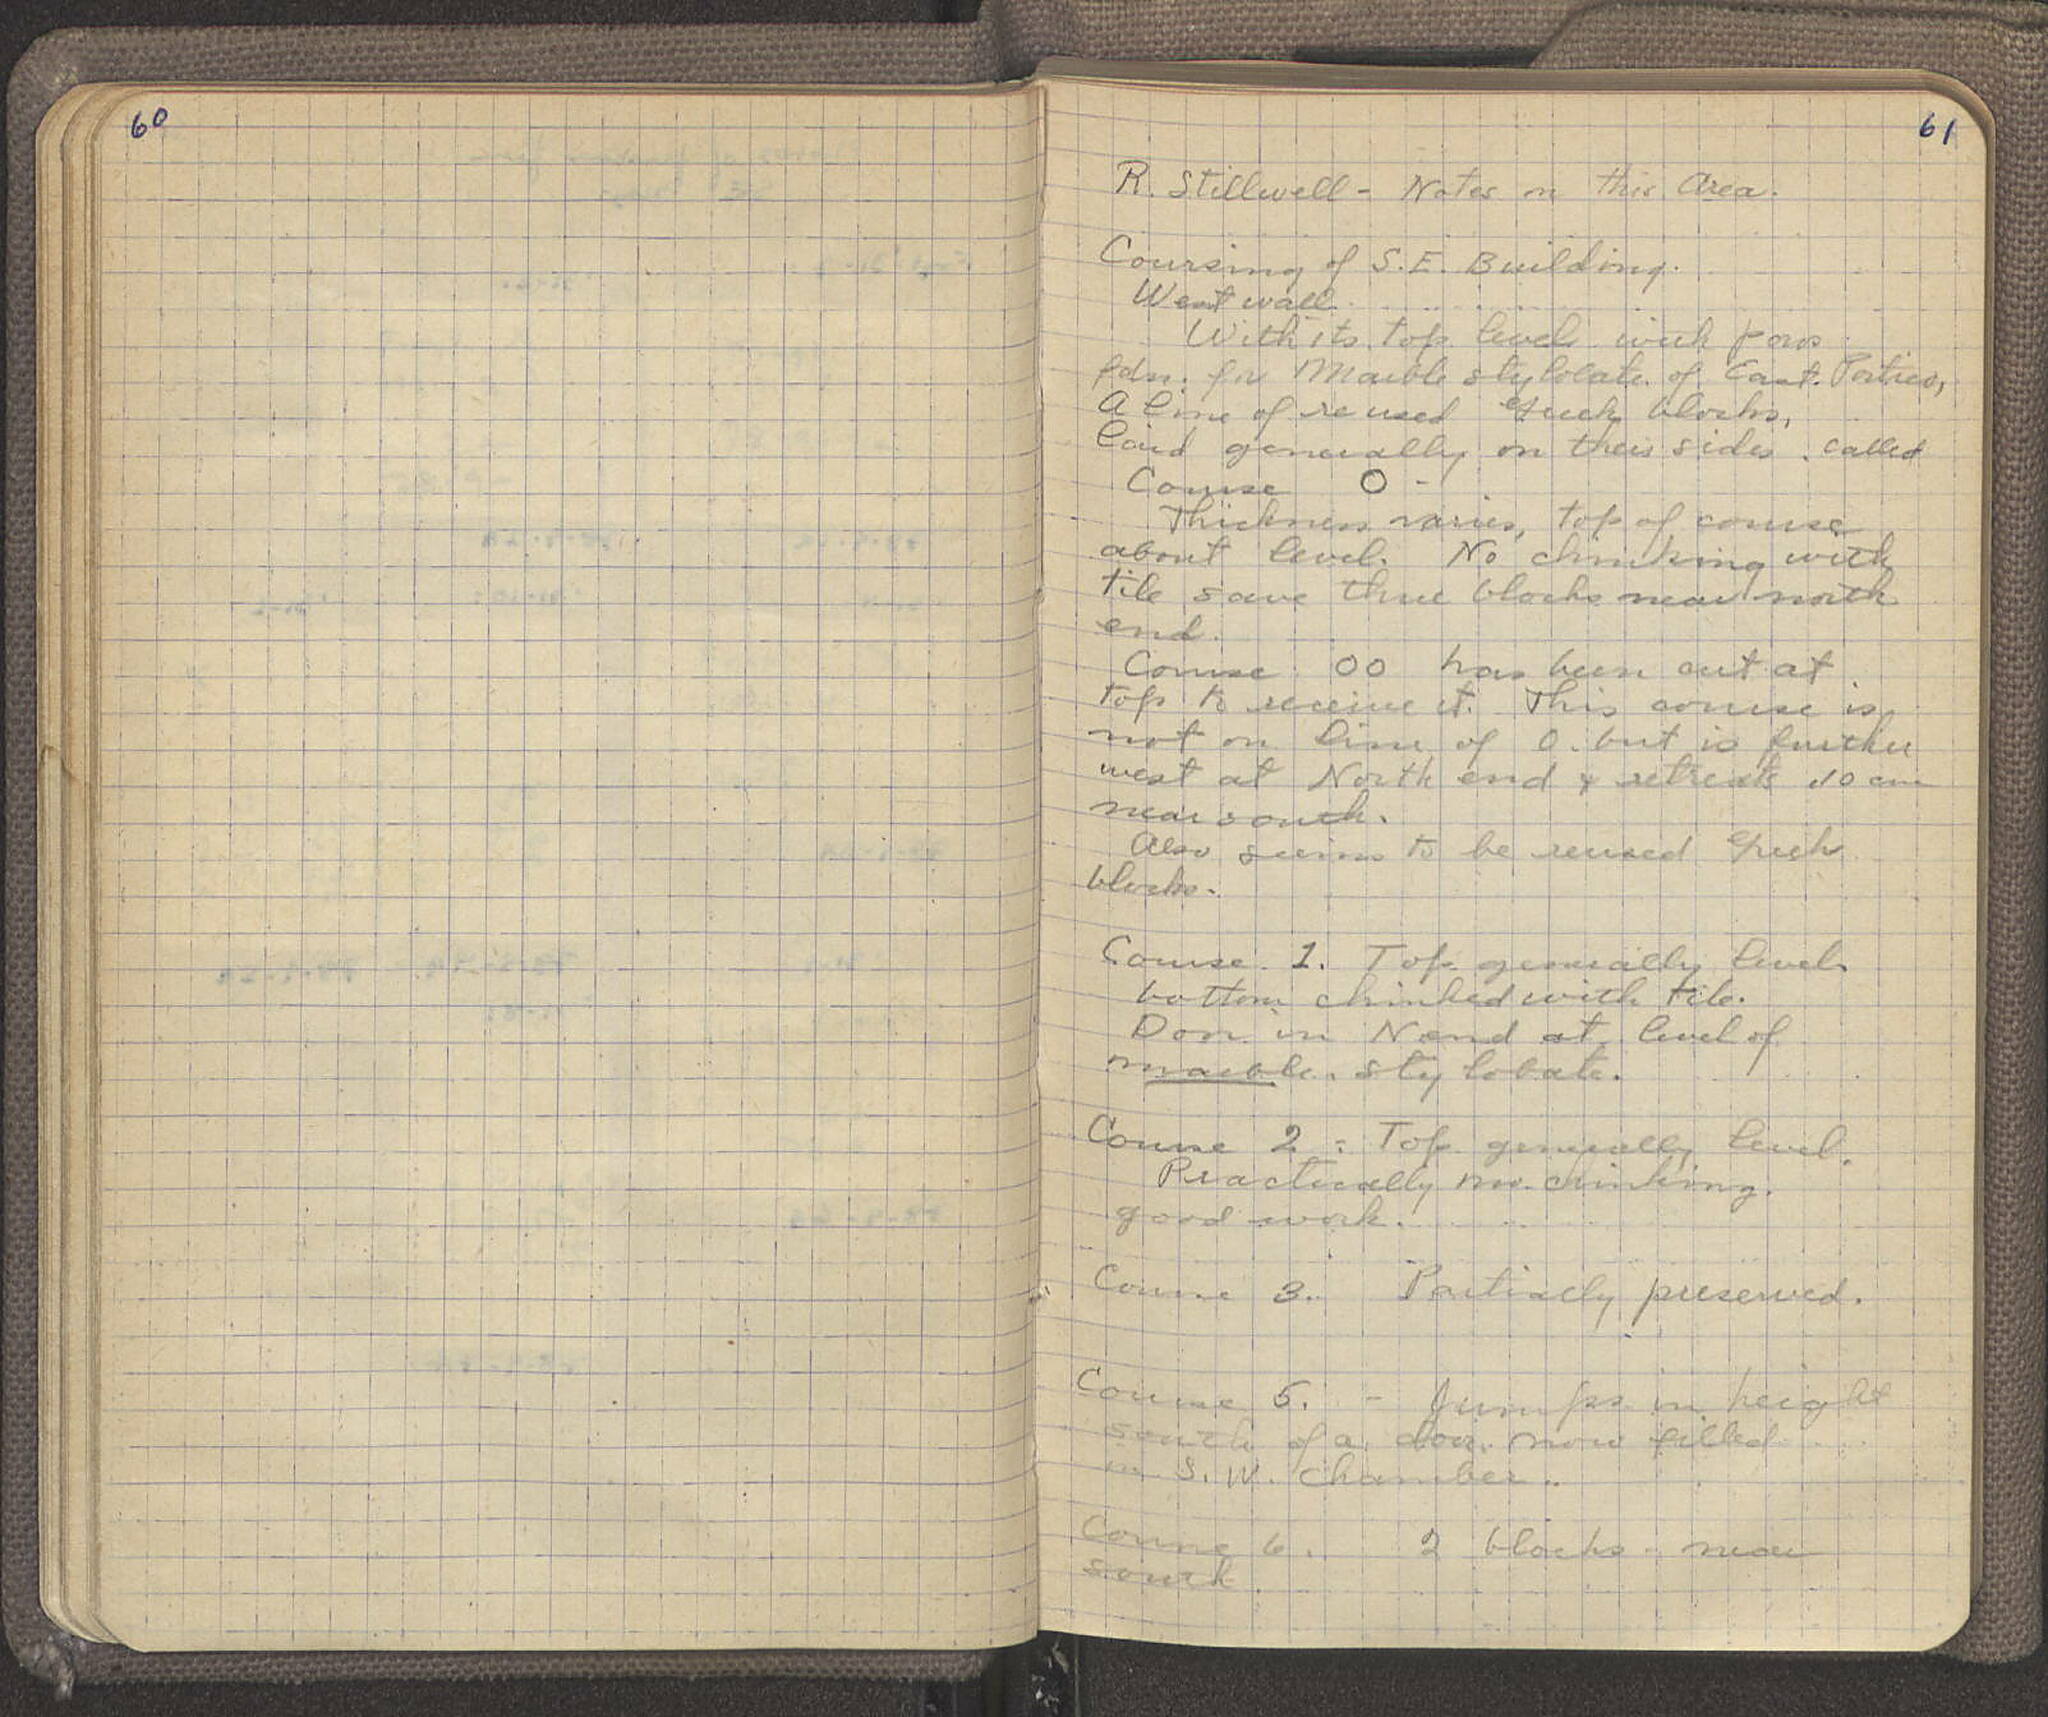 60
61
R. Stillwell - Notes on this Area.
Coursing of S.E. Building.
West wall.
With its top level with poros
fdn. for Marble stylobate of East. Portico,
A line of reused Greek blocks,
laid generally on their sides. called
Course O -
Thickness varies, top of course
about level. No chinking with
tile save three blocks near north
end.
Course OO has been cut at
top to receive it. This course is
not on line of O. but is further
west at North end & retreats 10 cm
near south.
Also seems to be reused Greek
blocks.
Course 1. Top generally level
bottom chinked with tile.
Door in N end at level of
marble stylobate.
Course 2: Top generally level.
Practically no chinking.
good work.
Course 3. Partially preserved.
Course 5. - Jumps in height
south of a door now filled
in S.W. Chamber.
Course 6. 2 blocks - near
south.